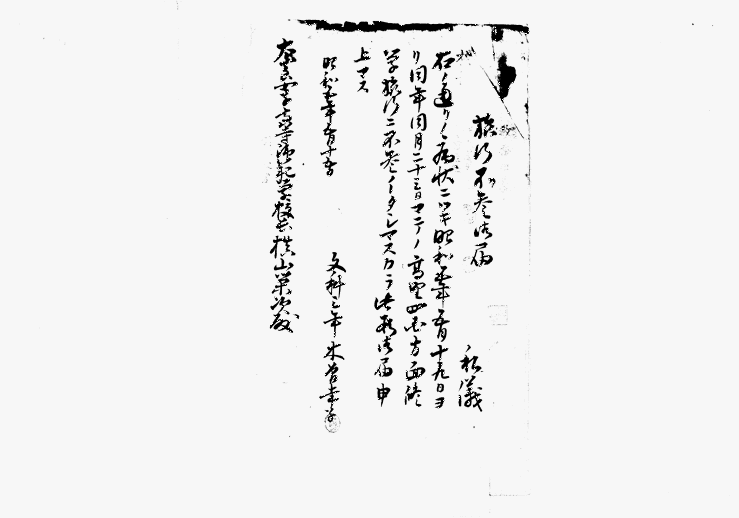 旅行不参御届
私儀
右ノ通リノ病状ニツキ昭和五年五月十九日ヨ
リ同年同月二十三日マデノ高野山吉方面修
学旅行ニ不参ノ
マスカラ此段御届申
上マス
昭和五年五月十五日
文科三年
奈良女子高等師範学校長横山栄次殿